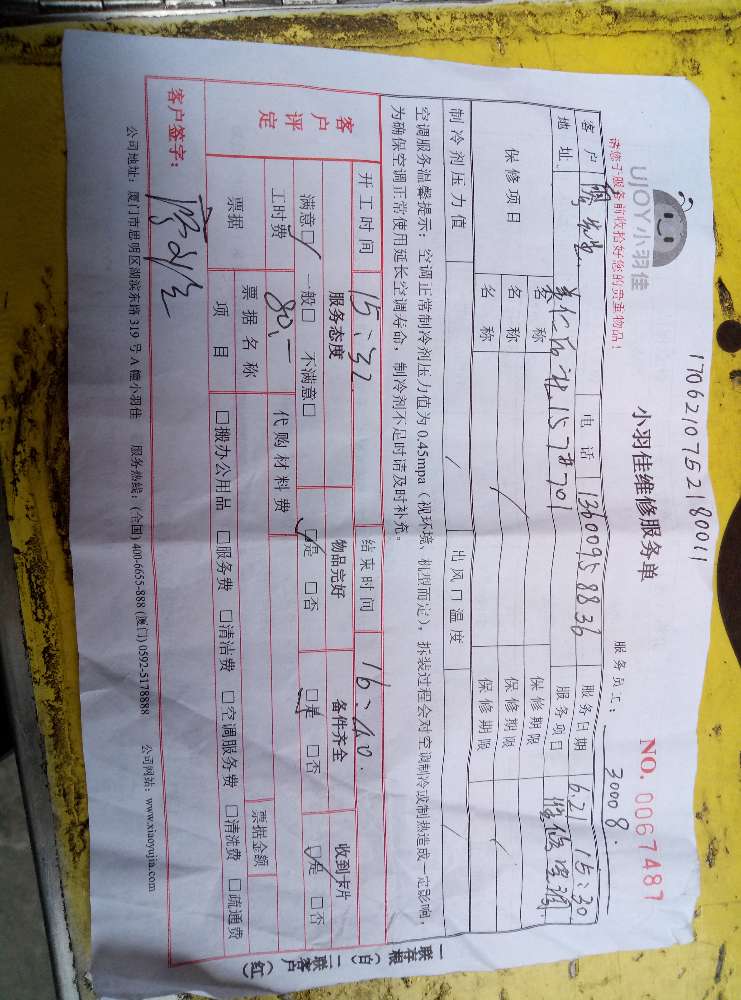 1706210752180011
UJOY小羽佳
小羽佳维修服务单
NO. 0067487
请您于服务前收拾好您的贵重物品！
服务员工： 3000 8.
客户 先生 电话 13600958836 服务日期 6.21 15:30
地址 服务项目 维修空调
保修项目 名称 保修期限
名称 / 保修期限 /
名称 保修期限
制冷剂压力值 / 出风口温度 /
空调服务温馨提示：空调正常制冷剂压力值为0.45mpa（视环境、机型而定），拆装过程会对空调制冷或制热造成一定影响，
为确保空调正常使用延长空调寿命，制冷剂不足时请及时补充。
一联存根（白）二联客户（红）
客户评定
开工时间 15:32 结束时间 16:40.
服务态度 物品完好 备件齐全 收到卡片
满意□ 一般□ 不满意□ □是 □否 □是 □否 □是 □否
工时费 80.- 代购材料费
票据 票据名称 票据金额
项目 □搬办公用品 □服务费 □清洁费 □空调服务费 □清洗费 □疏通费
客户签字：
公司地址：厦门市思明区湖滨东路319号A幢小羽佳 服务热线：(全国) 400-6655-888 (厦门) 0592-5178888 公司网站：www.xiaoyujia.com